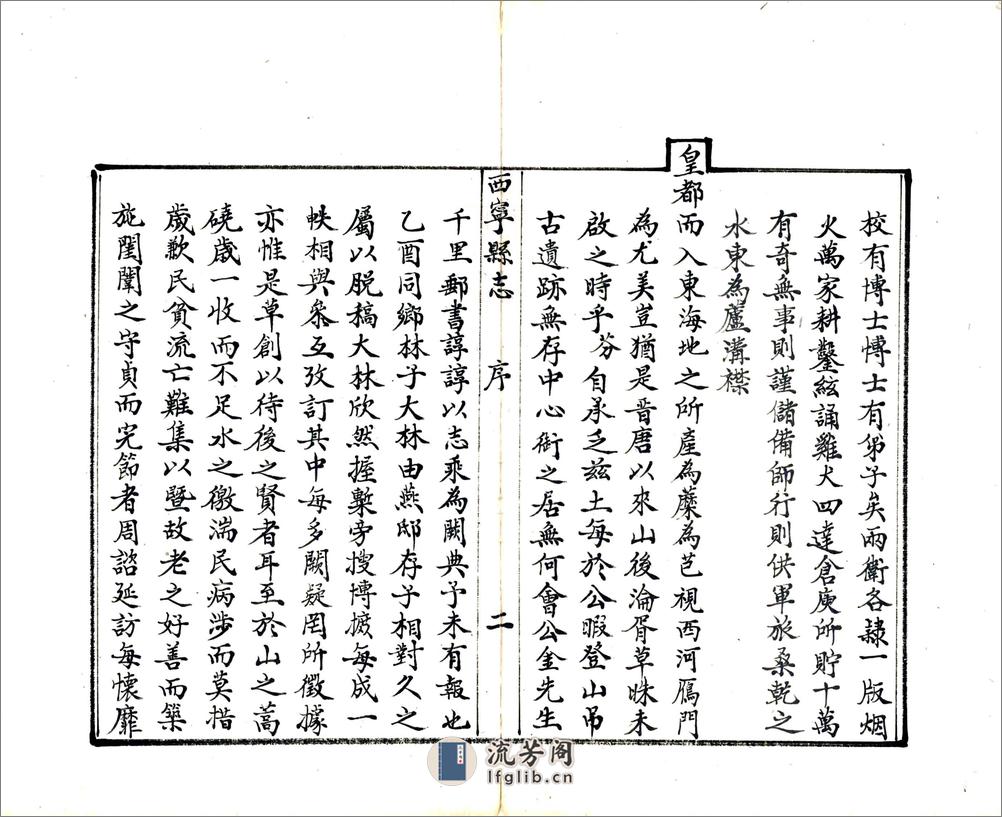 校有博士博士有弟子矣兩衛各隷一版烟
火萬家耕鑿絃誦雞犬四達倉庾所貯十萬
有奇無事則謹儲備師行則供軍旅桑乾之
水東為盧溝襟
皇都而入東海地之所產為藥為芑視西河鴈門
為尤美豈猶是晋唐以來山後淪胥草昧未
啟之時乎芬自承乏茲土每於公暇登山吊
古遺跡無存中心衔之居無何會公金先生
西寧縣志 序 二
千里郵書諄諄以志乘為闕典予未有報也
乙酉同鄉林子大林由燕邸存子相對久之
屬以脱稿大林欣然握槧旁搜博摭每成一
帙相與叅互攷訂其中每多闕疑罔所徵據
亦惟是草創以待後之賢者耳至於山之蒿
磽歲一收而不足水之徼湍民病涉而莫措
歲歉民貧流亡難集以暨故老之好善而築
施閨闈之守貞而完節者周諮延訪每懷靡
流芳阁
lfglib.cn